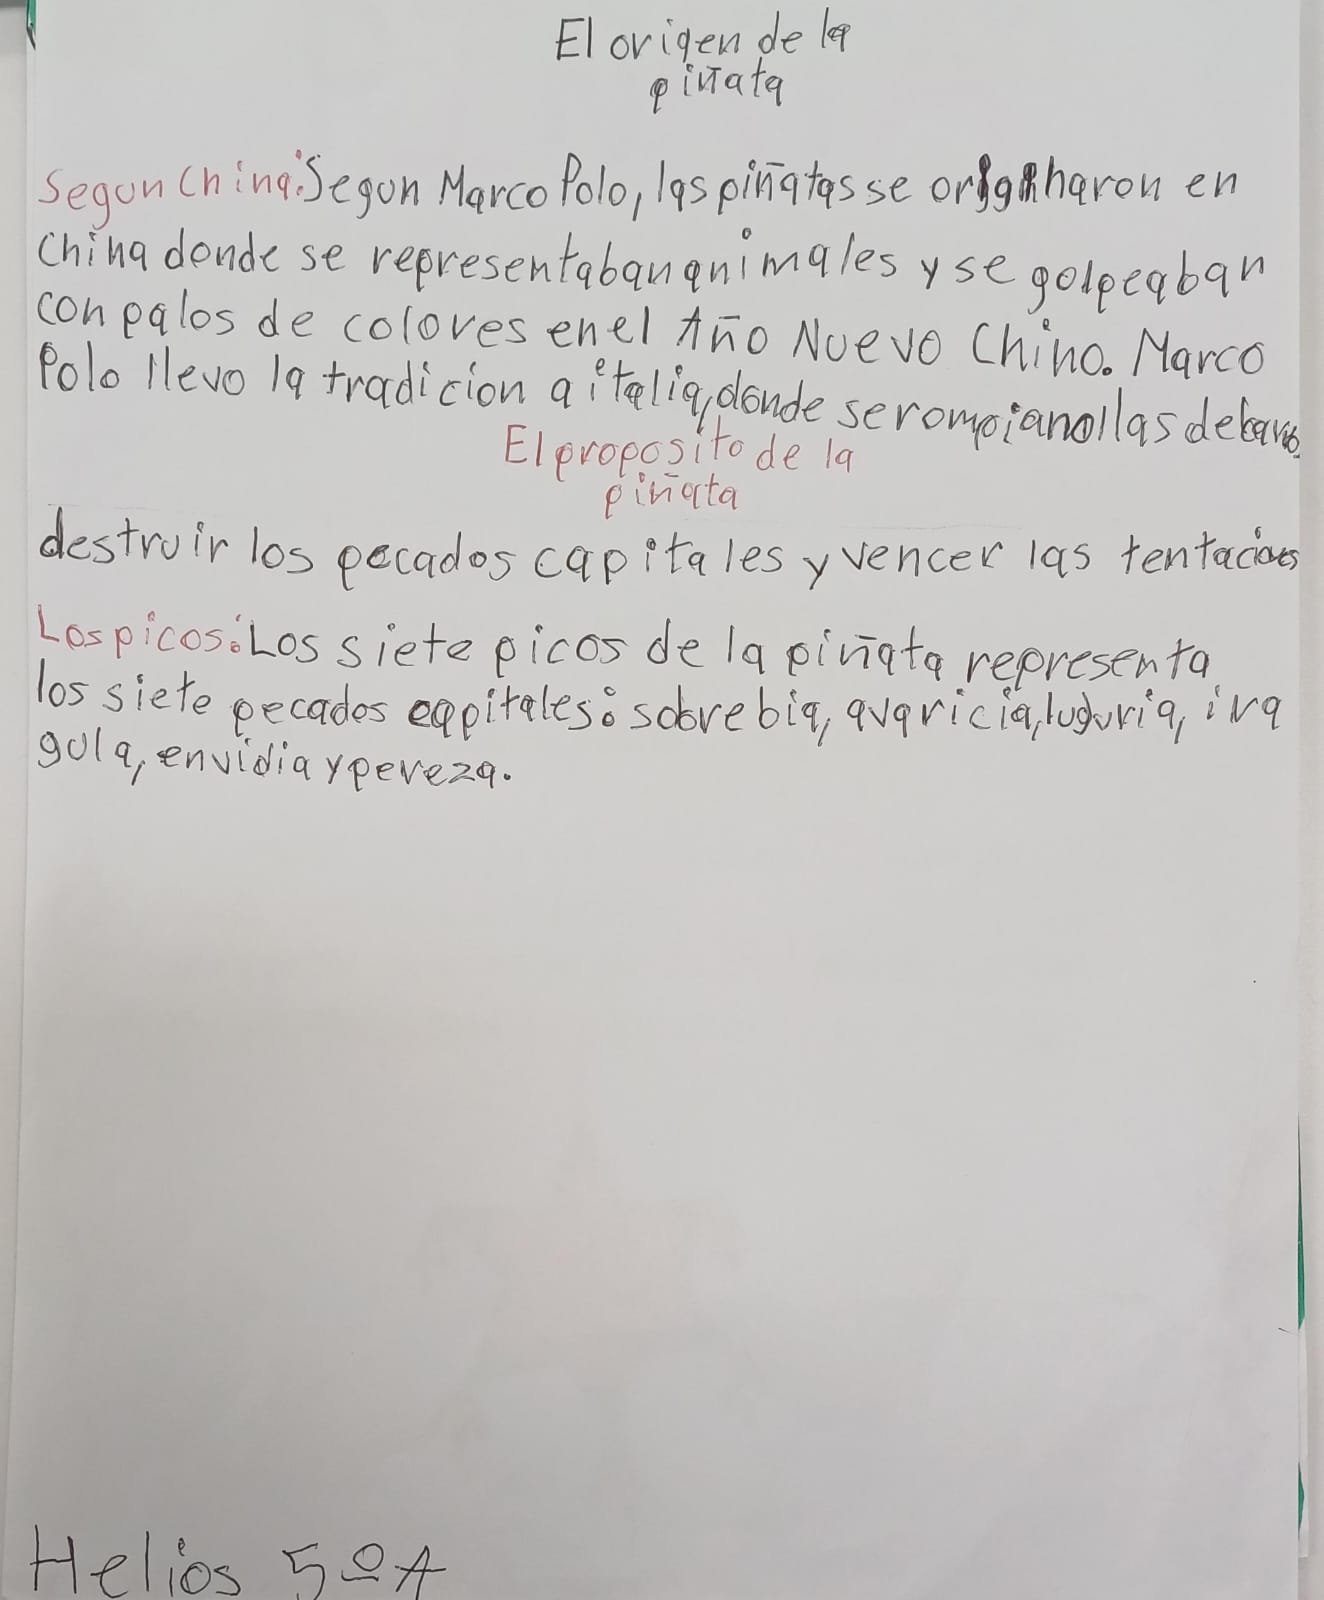 El origen de la
piñata
Segun China: Segun Marco Polo, las piñatas se originaron en
China donde se representaban animales y se golpeaban
con palos de colores en el Año Nuevo Chino. Marco
Polo llevo la tradicion a italia, donde se rompian ollas de barro
El proposito de la
piñata
destruir los pecados capitales y vencer las tentaciones
Los picos: Los siete picos de la piñata representa
los siete pecados capitales: sobrebia, avaricia, luguria, ira
gula, envidia y pereza.
Helios 5ºA